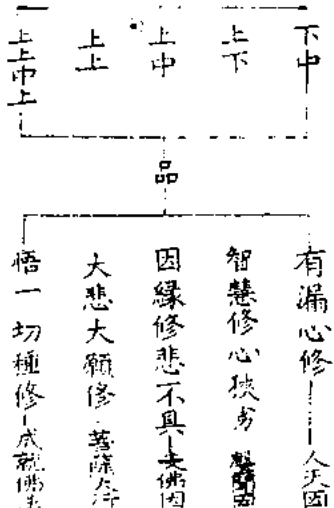 下中
上下
上中
上上
上上中上
品
有漏心修—人天因
智慧修心狹劣
因緣修悲不具—支佛因
大悲大願修—菩薩
悟一切種修—成就佛